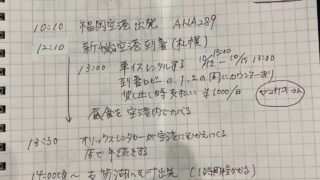 10:10 福岡空港出発 ANA289
12:10 新千歳空港到着(札幌)
13:00 車イスレンタルする 10/12 13:00 ~ 10/15 13:00
到着ロビーの 1、2の間にカウンターあり
貸し出し時支払い ¥1000/日
昼食を空港内でのべる
13:30 オリックスレンタカーが空港にむかえにくる
店で手続をする
14:00頃~ 支笏湖へむけ出発 (1時間程かかる)